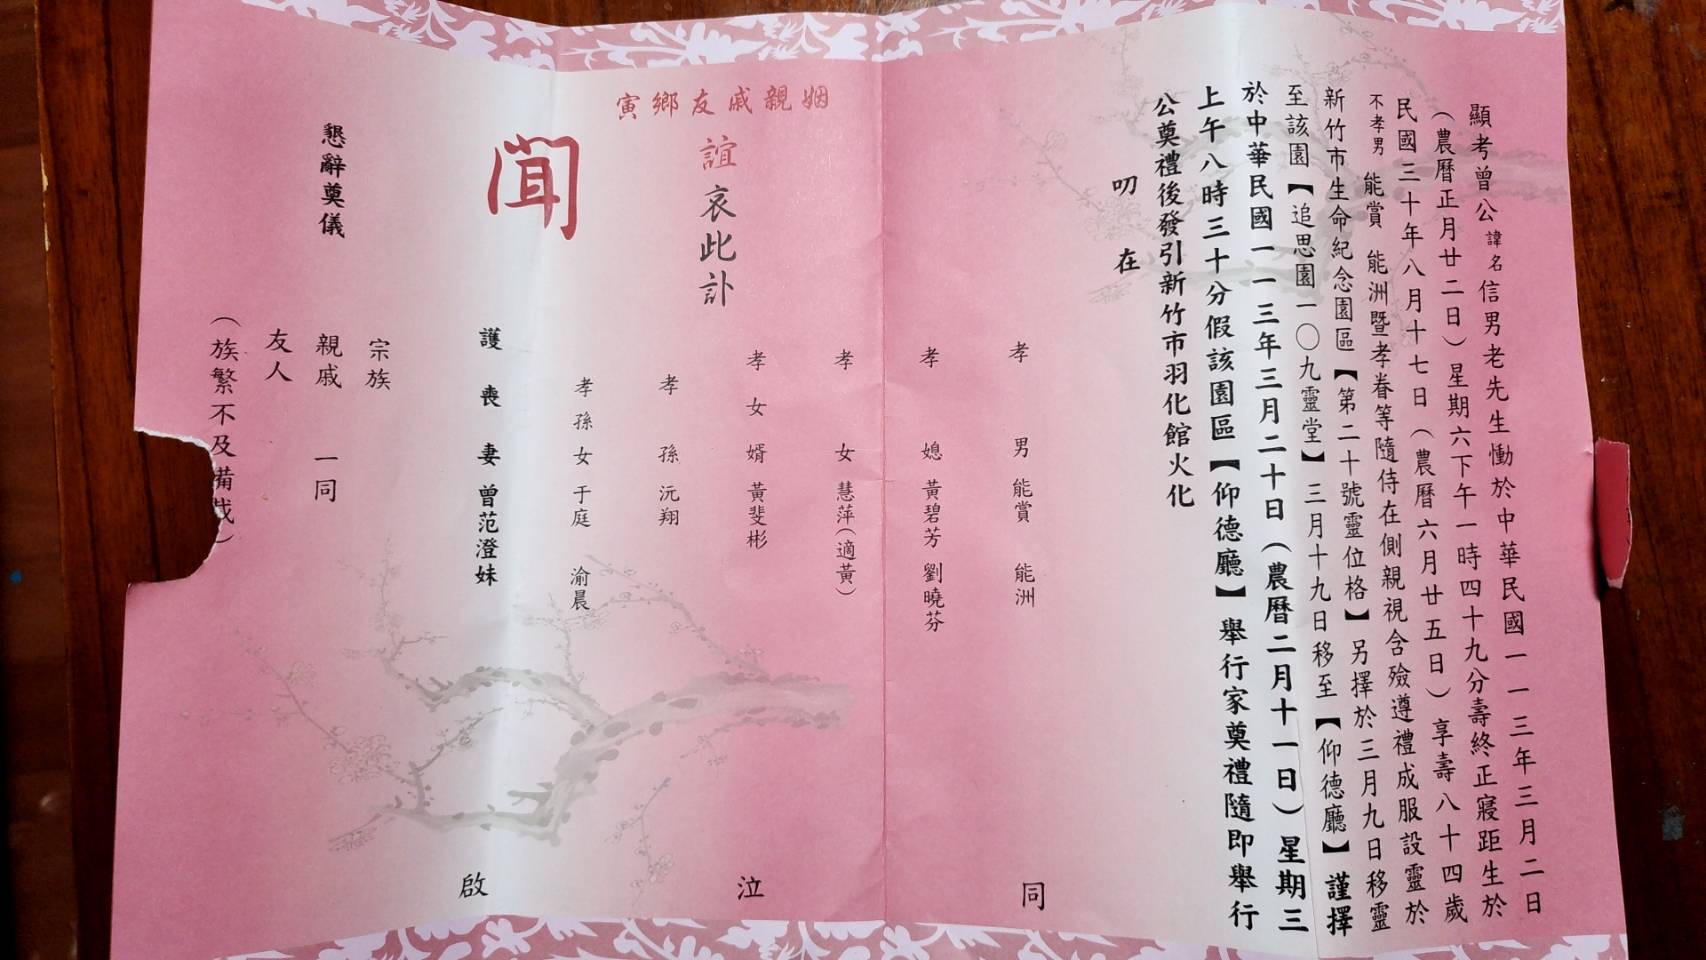 顯考曾公諱名信男老先生慟於中華民國一一三年三月二日
（農曆正月廿二日）星期六下午一時四十九分壽終正寢距生於
民國三十年八月十七日（農曆六月廿五日）享壽八十四歲
不孝男 能賞 能洲暨孝眷等隨侍在側親視含殮遵禮成服設靈於
新竹市生命紀念園區【第二十號靈位格】另擇於三月九日移靈
至該園【追思園一〇九靈堂】三月十九日移至【仰德廳】謹擇
於中華民國一一三年三月二十日（農曆二月十一日）星期三
上午八時三十分假該園區【仰德廳】舉行家奠禮隨即舉行
公奠禮後發引新竹市羽化館火化
叨在
姻親戚友鄉寅
誼哀此訃
聞
孝男 能賞 能洲
孝媳 黃碧芳 劉曉芬
孝女 慧萍（適黃）
孝女婿 黃斐彬
孝孫 沅翔
孝孫女 于庭 渝晨
護喪妻 曾范澄妹
同泣啟
懇辭奠儀
宗族
親戚 一同
友人
（族繁不及備載）